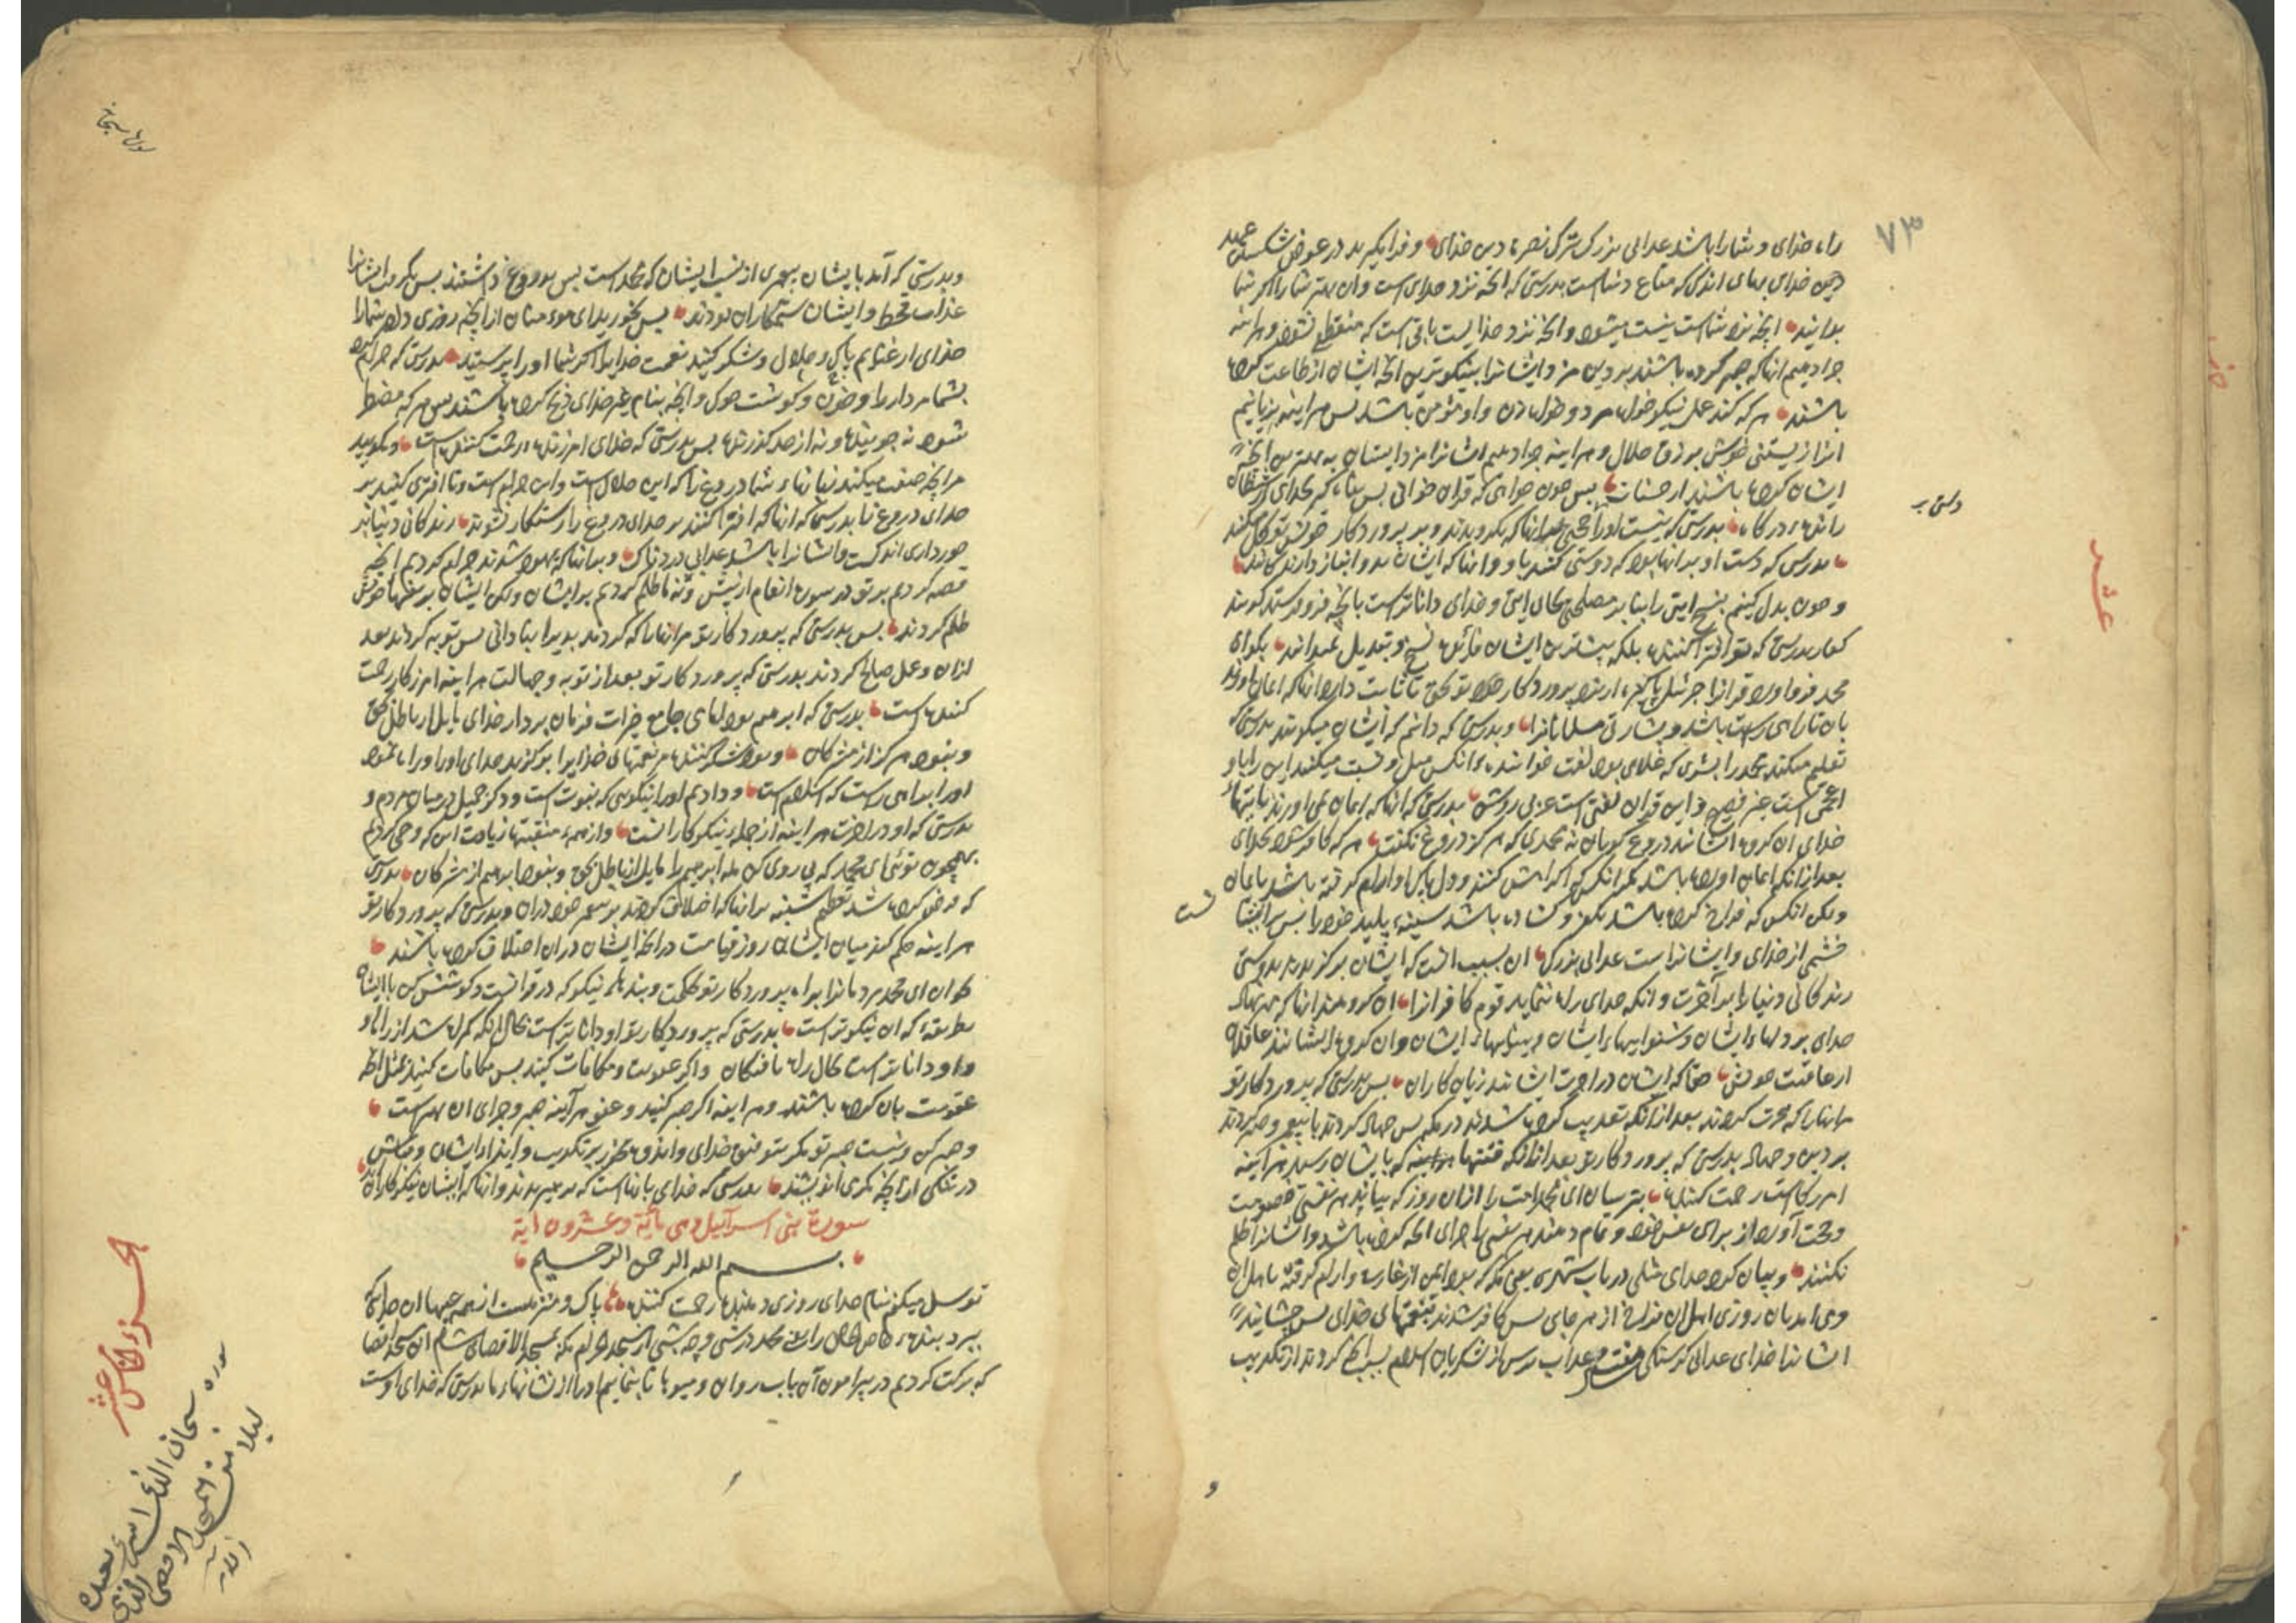 ۷۳
راه خدای و شما را باشد عذابی بزرک بترک نصرة دین خدای و فرا مکیرید در عوض شکستن عهد
دین خدای بهای اندک که متاع دنیاست بدرستی که انچه نزد خدای است وان بهتر شما را اکر شما
بدانید انچه نزد شماست نیست میشود و انچه نزد خدایست باقی است که منقطع نشود و هراینه
جزا دهیم انها که صبر کرده باشند بر دین مزد ایشانرا بنیکوترین انچه ایشان از طاعت کرده
باشند هر که کند عمل نیکو خواه مرد و خواه زن و او مؤمن باشد پس هراینه بزیانیم
انرا زیستنی خوش برزق حلال و هراینه جزا دهیم ایشانرا مزد ایشان به بهترین انچه
ایشان کرده باشند از حسنات پس چون خواهی که قران خوانی پس پناه کیر بخدای از شیطان
رانده درکاه بدرستی که نیست او را حجتی برانها که بکرویدند و بر پروردکار خویش توکل میکنند
بدرستی که دست او برانها بود که دوستی کنند با او و انها که ایشان بدو انباز دارند کانند
و چون بدل کنیم بنسخ ایتی را بنا بر مصلحتی بجای ایتی و خدای داناتر است بانچه فرو فرستد کویند
کفار بدرستی که تو افترا کننده بلکه بیشترین ایشان فائده نسخ و تبدیل نمیدانند بکو ای
محمد فرو اورد قرانرا جبرئیل پاکیزه از نزد پروردکار تو بحق تا ثابت دارد انها که ایمان اورند
بان تا راه راست باشد و بشارتی مسلمانانرا و بدرستی که دانم که ایشان میکویند بدرستی که
تعلیم میکند محمد را بشری که غلامی بود لغت خوانند انکس میل و نسبت میکنند این را باو
اعجمی است غیر فصیح و این قران لغتی است عربی روشن بدرستی که انها که ایمان نمی اورند بایتهاء
خدای ان کروه ایشانند دروغ کویان نه محمدی که هرکز دروغ نکفت هر که کافر شود بخدای
بعد از انکه ایمان اورده باشد مکر انکس که اکراهش کنند و دل پاک او ارام کرفته باشد بایمان
ولکن انکس که فراخ کرده باشد بکفر و کشاده باشد سینه پلید خود را پس بر ایشان
خشمی از خدای و ایشانراست عذابی بزرک ان بسبب انست که ایشان برکزیدند بدوستی
زندکانی دنیا را بر آخرت و انکه خدای راه ننماید قوم کافرانرا ان کروهند انها که مهر نهاد
خدای بر دلهاء ایشان و شنواییهاء ایشان و بیناییهاء ایشان وان کروه ایشانند غافلان
از عاقبت خویش حقا که ایشان در اخرت ایشانند زیان کاران پس بدرستی که پروردکار تو
مرانها را که هجرت کردند بعد از انکه تعذیب کرده شدند در مکه پس جهاد کردند با پیغمبر و صبر کردند
بر دین و جهاد بدرستی که پروردکار تو بعد از انکه فتنتها که بایشان رسید هراینه
امرزکارست رحمت کننده بترسان ای محمد امت را از ان روز که بیاید هر نفسی خصومت
و حجت آورد از برای نفس خود و تمام دهند هر نفسی را جزای انچه کرده باشد و ایشانرا ظلم
نکنند و بیان کرد خدای مثلی در باب شهری یعنی مکه که بود ایمن از غارت و ارام کرفته باهل ان
می امد بان روزی اهل ان فراخ از هر جای پس کافر شدند بنعمتهای خدای پس چشانید
ایشانرا خدای عذابی کرسنکی هفت سال و عذاب ترس از لشکریان اسلام بسبب انچه کردند از تکذیب
عشر
و
سوره سبحان
و بدرستی که آمد بایشان پیغمبری از نسب ایشان که محمد است پس بدروغ داشتند پس بکرفت ایشانرا
عذاب قحط و ایشان ستمکاران بودند پس بخورید ای مومنان از انچه روزی داد شما را
خدای از غنایم پاک و حلال و شکر کنید نعمت خدایرا اکر شما او را پرستید بدرستی که حرام کرد
بشما مردار را و خون و کوشت خوک و انچه بنام غیر خدای ذبح کرده باشند پس هر که مضطر
شود نه جوینده و نه از حد کذرنده پس بدرستی که خدای امرزنده و رحمت کننده است و مکویید
مر انچه صفت میکند زبانهاء شما دروغ را که این حلال است و این حرام است و تا افتری کنید بر
خدای دروغ را بدرستی که انها که افترا کنند بر خدای دروغ را رستکار نشوند زندکانی دنیا بر
خورداری اندکست و ایشانرا باشد عذابی دردناک و برانها که یهود شدند حرام کردیم انچه
قصه کردیم بر تو در سوره انعام از پیش و نه ما ظلم کردیم بر ایشان ولکن ایشان بر نفسهاء خویش
ظلم کردند پس بدرستی که پروردکار تو مرانها را که کردند بدیرا بنادانی پس توبه کردند بعد
ازان و عمل صالح کردند بدرستی که پروردکار تو بعد از توبه و جهالت هراینه امرزکار رحمت
کننده است بدرستی که ابرهیم بود امامی جامع خیرات فرمان بردار خدای مایل از باطل بحق
و نبود هرکز از مشرکان و بود شکر کننده مر نعمتهای خدایرا برکزید خدای او را و راه نمود
او را براهی راست که اسلام است و دادیم او را نیکویی که نبوت است و ذکر جمیل در میان مردم و
بدرستی که او در اخرت هراینه از جمله نیکوکارانست و از همه منقبتها زیادت این که وحی کردیم
بهمچون توئی ای محمد که پی روی کن مله ابرهیم را مایل از باطل بحق و نبود ابرهیم از مشرکان بدرستی
که فرض کرده شد تعظیم شنبه برانها که اختلاف کردند بر پیغمبر خود دران و بدرستی که پروردکار تو
هراینه حکم کند میان ایشان روز قیامت در انچه ایشان دران اختلاف کرده باشند
بخوان ای محمد مردمانرا براه پروردکار تو بحکمت و پندهاء نیکو که در قرانست و کوشش کن با ایشان
بطریقه که ان نیکوتر است بدرستی که پروردکار تو او داناتر است بحال انکه کمراه شد از راه او
و او داناتر است بحال راه یافتکان و اکر عقوبت و مکافات کنید پس مکافات کنید بمثل انچه
عقوبت بان کرده باشند و هراینه اکر صبر کنید و عفو هرآینه صبر و جزای ان بهتر است
و صبر کن و نیست صبر تو مکر بتوفیق خدای و اندوه مخور بر تکذیب و ایذاء ایشان و مباش
در تنکی از انچه مکری اندیشند بدرستی که خدای با انهاست که پرهیزیدند و انها که ایشان نیکوکارانند
سورة بنی اسرآئیل و هی مائة و عشرون ایة
بسم الله الرحمن الرحیم
توسل میکنم بنام خدای روزی دهنده رحمت کننده پاک و منزهست از همه عیبها ان خدای که
ببرد بنده خاص خالص را یعنی محمد در شبی و چه شبی از مسجد حرام مکه بمسجد الاقصای شام ان مسجد اقصا
که برکت کردیم در پیرامون آن باب روان و میوها تا بنماییم او را از نشانهاء ما بدرستی که خدای اوست
الجزء الخامس عشر
سوره سبحان الذی اسری بعبده
لیلا من المسجد الاقصی الذی
الآیه